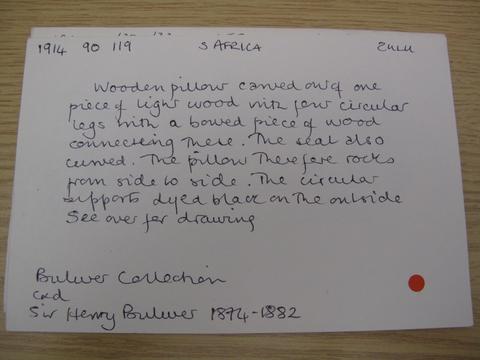 1914 90 119 S AFRICA ZULU
Wooden pillow carved out of one
piece of light wood with four circular
legs with a bowed piece of wood
connecting these. The seat also
curved. The pillow therefore rocks
from side to side. The circular
supports dyed black on the outside
See over for drawing
Bulwer Collection
Sir Henry Bulwer 1874-1882